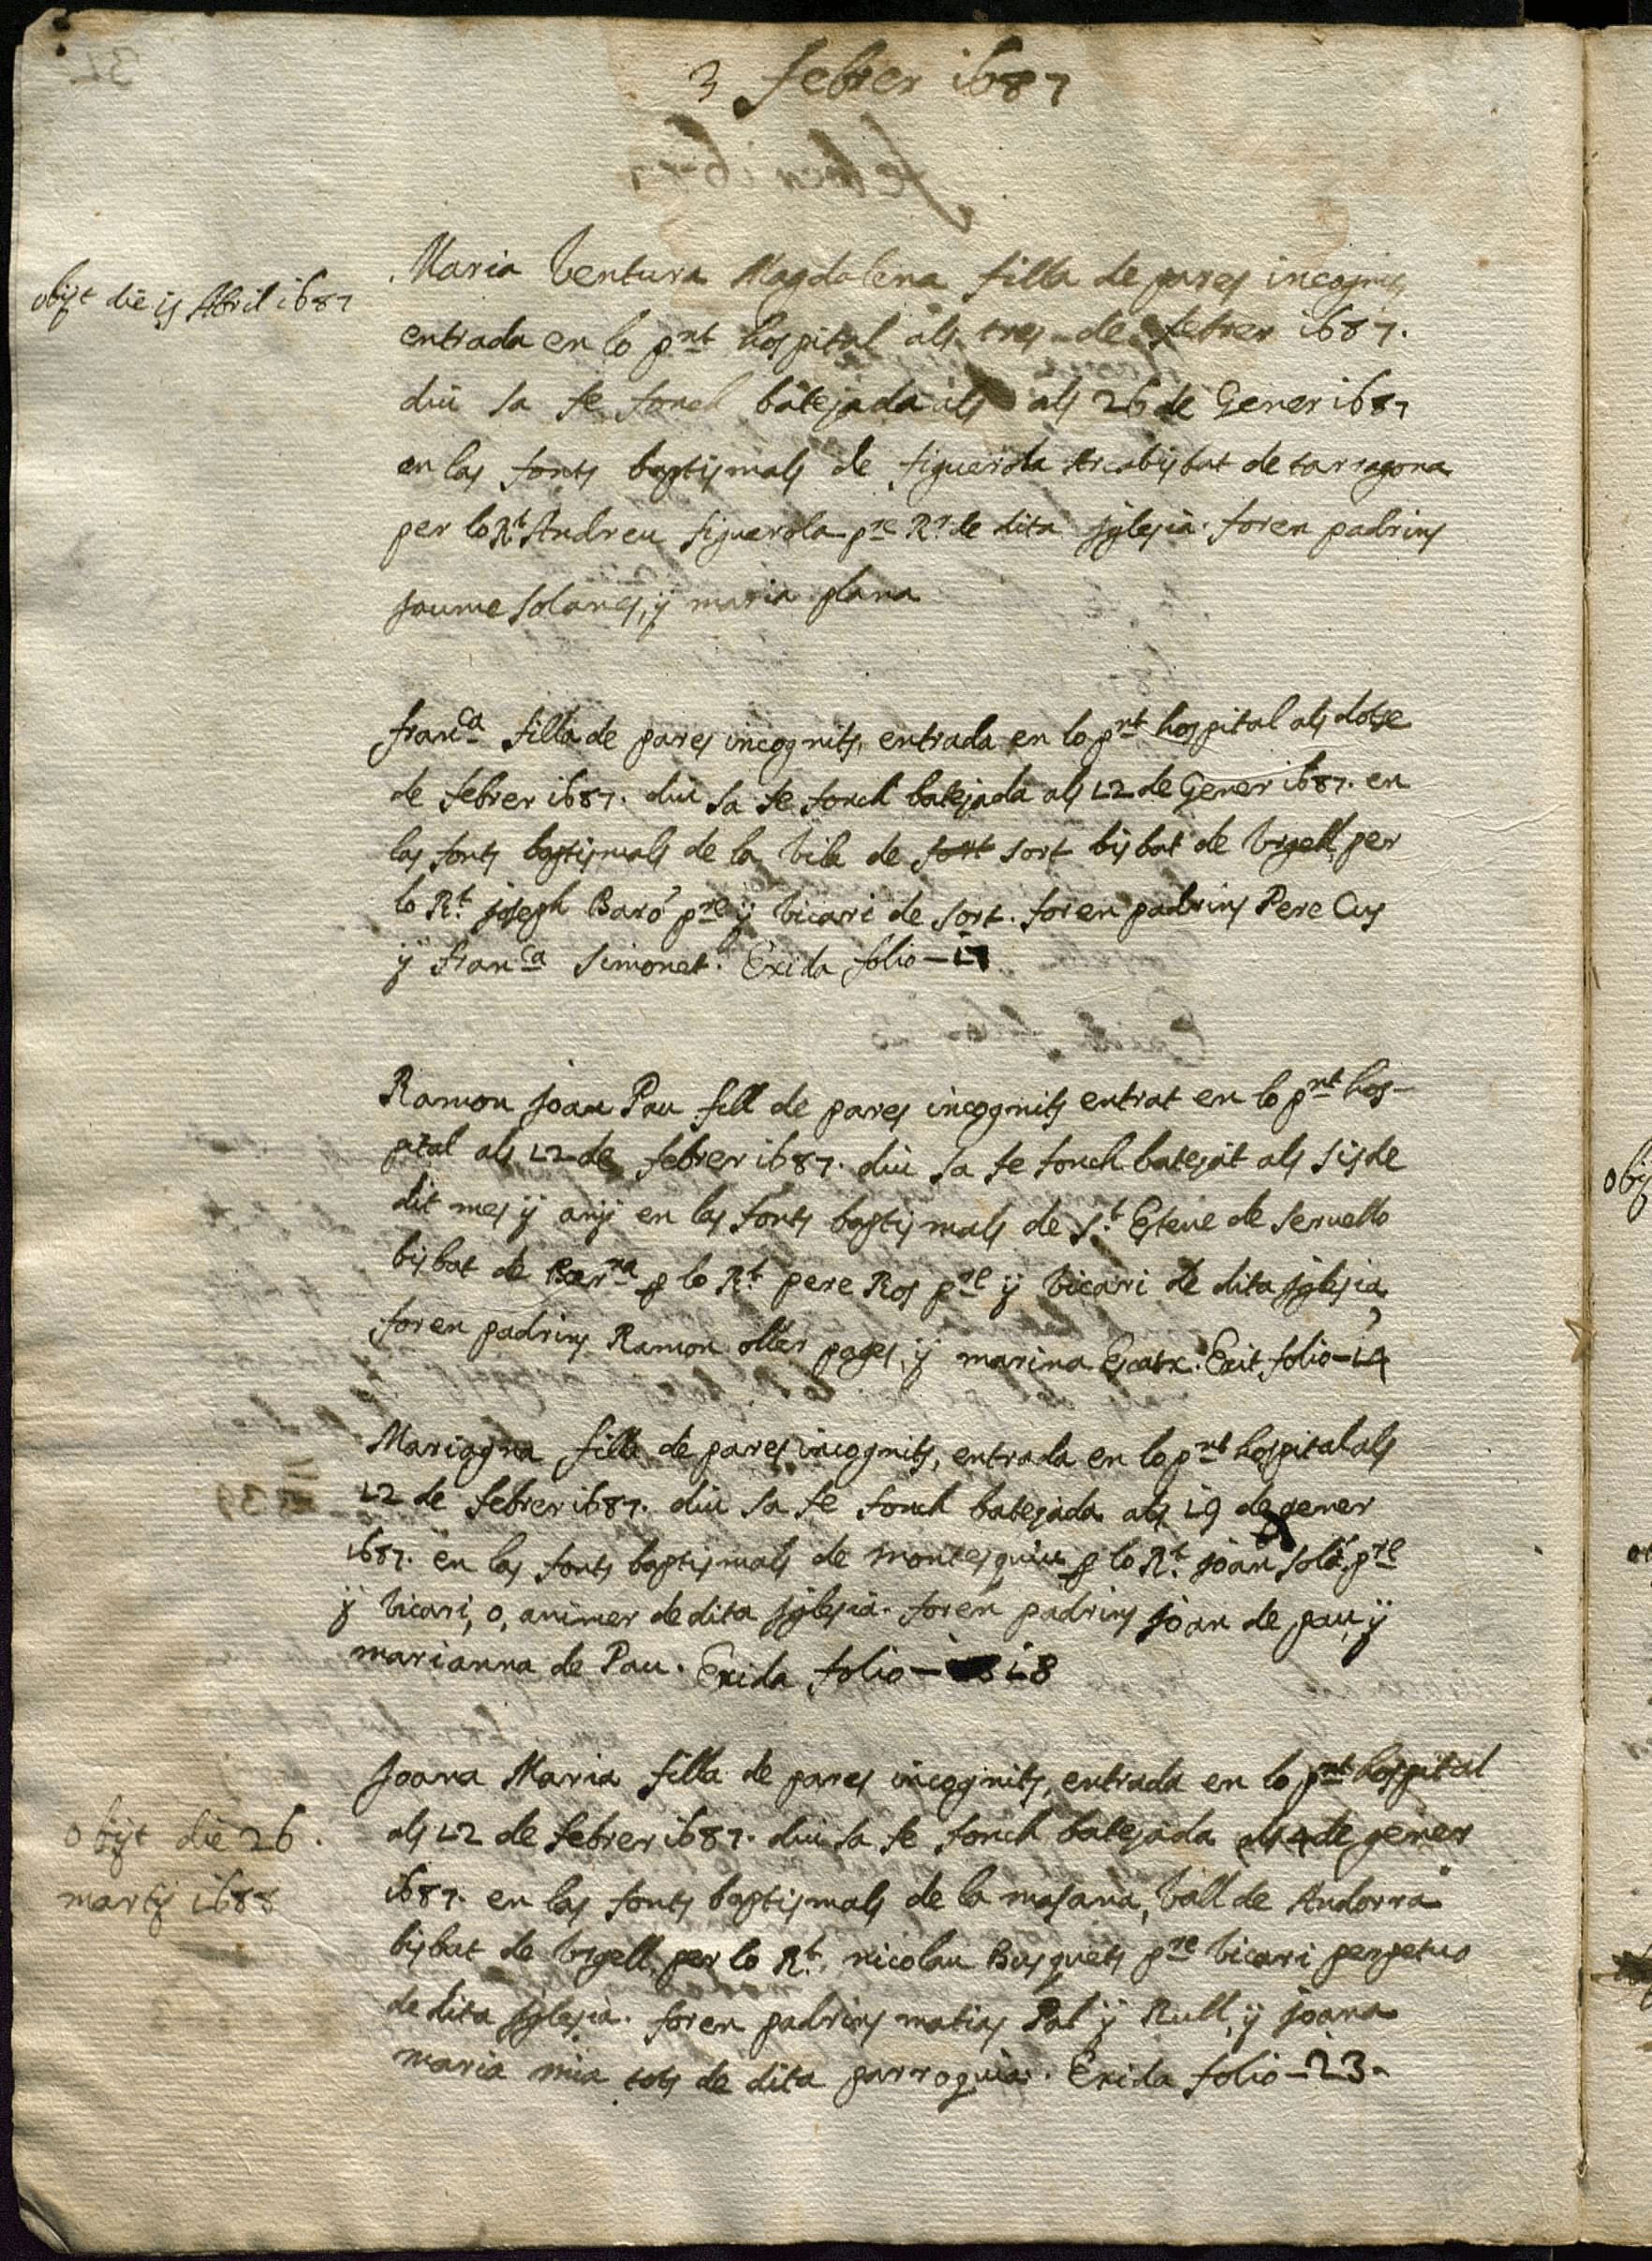 3 febrer 1687
Maria Ventura Magdalena filla de pares incognits,
obijt die 15 Abril 1687
entrada en lo pnt hospital als tres de febrer 1687.
diu sa fe fonch batejada als als 26 de Gener 1687
en las fonts baptismals de figuerola Arcabisbat de tarragona
per lo Rt Andreu figuerola pre Rr de dita Iglesia. foren padrins
Jaume Solanes, ÿ maria plana
Franca filla de pares incognits, entrada en lo pnt hospital als dotse
de febrer 1687. diu sa fe fonch batejada als 12 de Gener 1687. en
las fonts baptismals de la Vila de sort sort bisbat de Vrgell, per
lo Rt. Joseph Baró pre ÿ Vicari de sort. foren padrins Pere Cus
ÿ Franca Simonet. Exida folio - 17
Ramon Joan Pau fill de pares incognits entrat en lo pnt hos-
pital als 12 de febrer 1687. diu sa fe fonch batejat als sis de
dit mes ÿ anÿ en las fonts baptismals de St. Esteve de Servello
bisbat de Barna p lo Rt. pere Ros pre ÿ Vicari de dita Iglesia,
foren padrins Ramon oller pages, ÿ marina Escarx. Exit folio - 14
Mariagna filla de pares incognits, entrada en lo pnt hospital als
12 de febrer 1687. diu sa fe fonch batejada als 19 de gener
1687. en las fonts baptismals de montesquiu p lo Rt. Joan Solá pre
ÿ Vicari, o, animer de dita Iglesia. foren padrins Joan de pau, ÿ
marianna de Pau. Exida folio - 18
Joana Maria filla de pares incognits, entrada en lo pnt hospital
obijt die 26.
als 12 de febrer 1687. diu sa fe fonch batejada als 4 de gener
martij 1688
1687. en las fonts baptismals de la masana, Vall de Andorra
bisbat de Vrgell, per lo Rt. nicolau Busquets pre Vicari perpetuo
de dita Iglesia. foren padrins matias Pal ÿ Rull, ÿ Joana
maria mia tots de dita parroquia. Exida folio - 23.